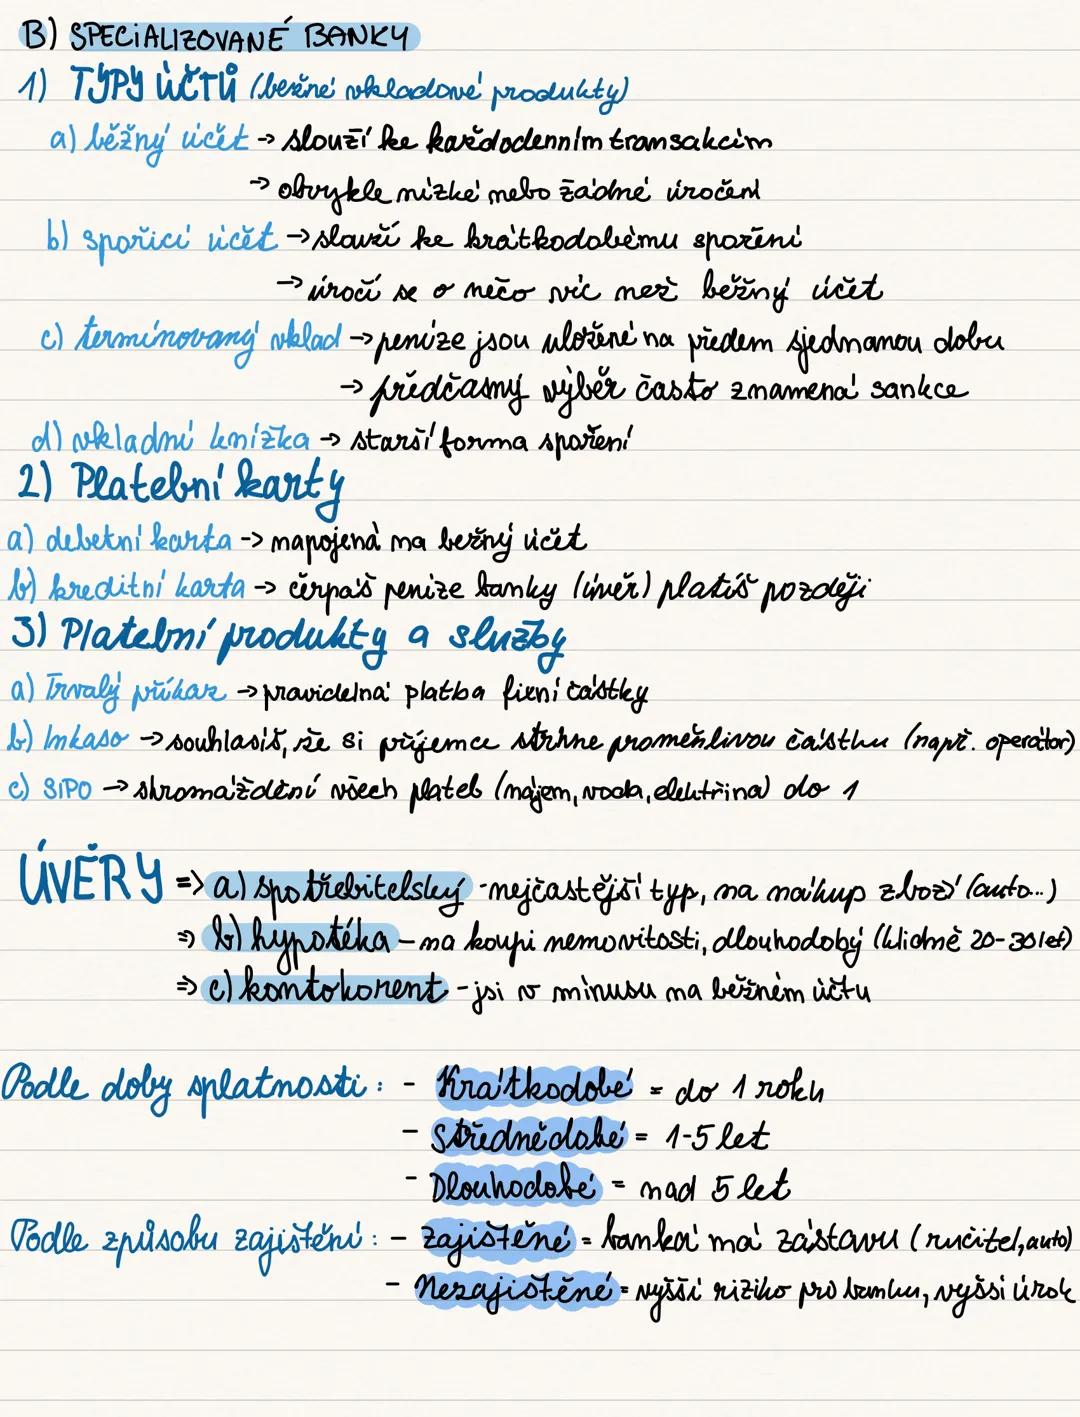 B) SPECIALIZOVANÉ BANKY
1) TYPY ÚČTŮ (bežné vkladové produkty)
a) běžný účet → slouží ke každodenním transakcím
→ obvykle nízké nebo žádné úročení
b) spořicí účet → slouží ke krátkodobému spoření
→ úročí se o něčo víc než běžný účet
c) termínovaný vklad → peníze jsou uložené na předem sjednanou dobu
→ předčasný výběr často znamená sankce
d) vkladní knížka → starší forma spoření
2) Platební karty
a) debetní karta → napojená na bežný účet
b) kreditní karta → čerpáš peníze banky (úvěr) platíš později
3) Platební produkty a služby
a) Trvalý příkaz → pravidelná platba fixní částky
b) Inkaso → souhlasíš, že si příjemce strhne proměnlivou částku (např. operátor)
c) SIPO → shromáždění všech plateb (nájem, voda, elektřina) do 1
ÚVĚRY => a) spotřebitelský - nejčastější typ, na nákup zboží (auto...)
=> b) hypotéka - na koupi nemovitosti, dlouhodobý (klidně 20-30 let)
=> c) kontokorent - jsi v mínusu na běžném účtu
Podle doby splatnosti: - Krátkodobé = do 1 roku
- Střednědobé = 1-5 let
- Dlouhodobé = nad 5 let
Podle způsobu zajištění: - zajištěné = banka má zástavu (ručitel, auto)
- Nezajištěné = vyšší riziko pro banku, vyšší úrok